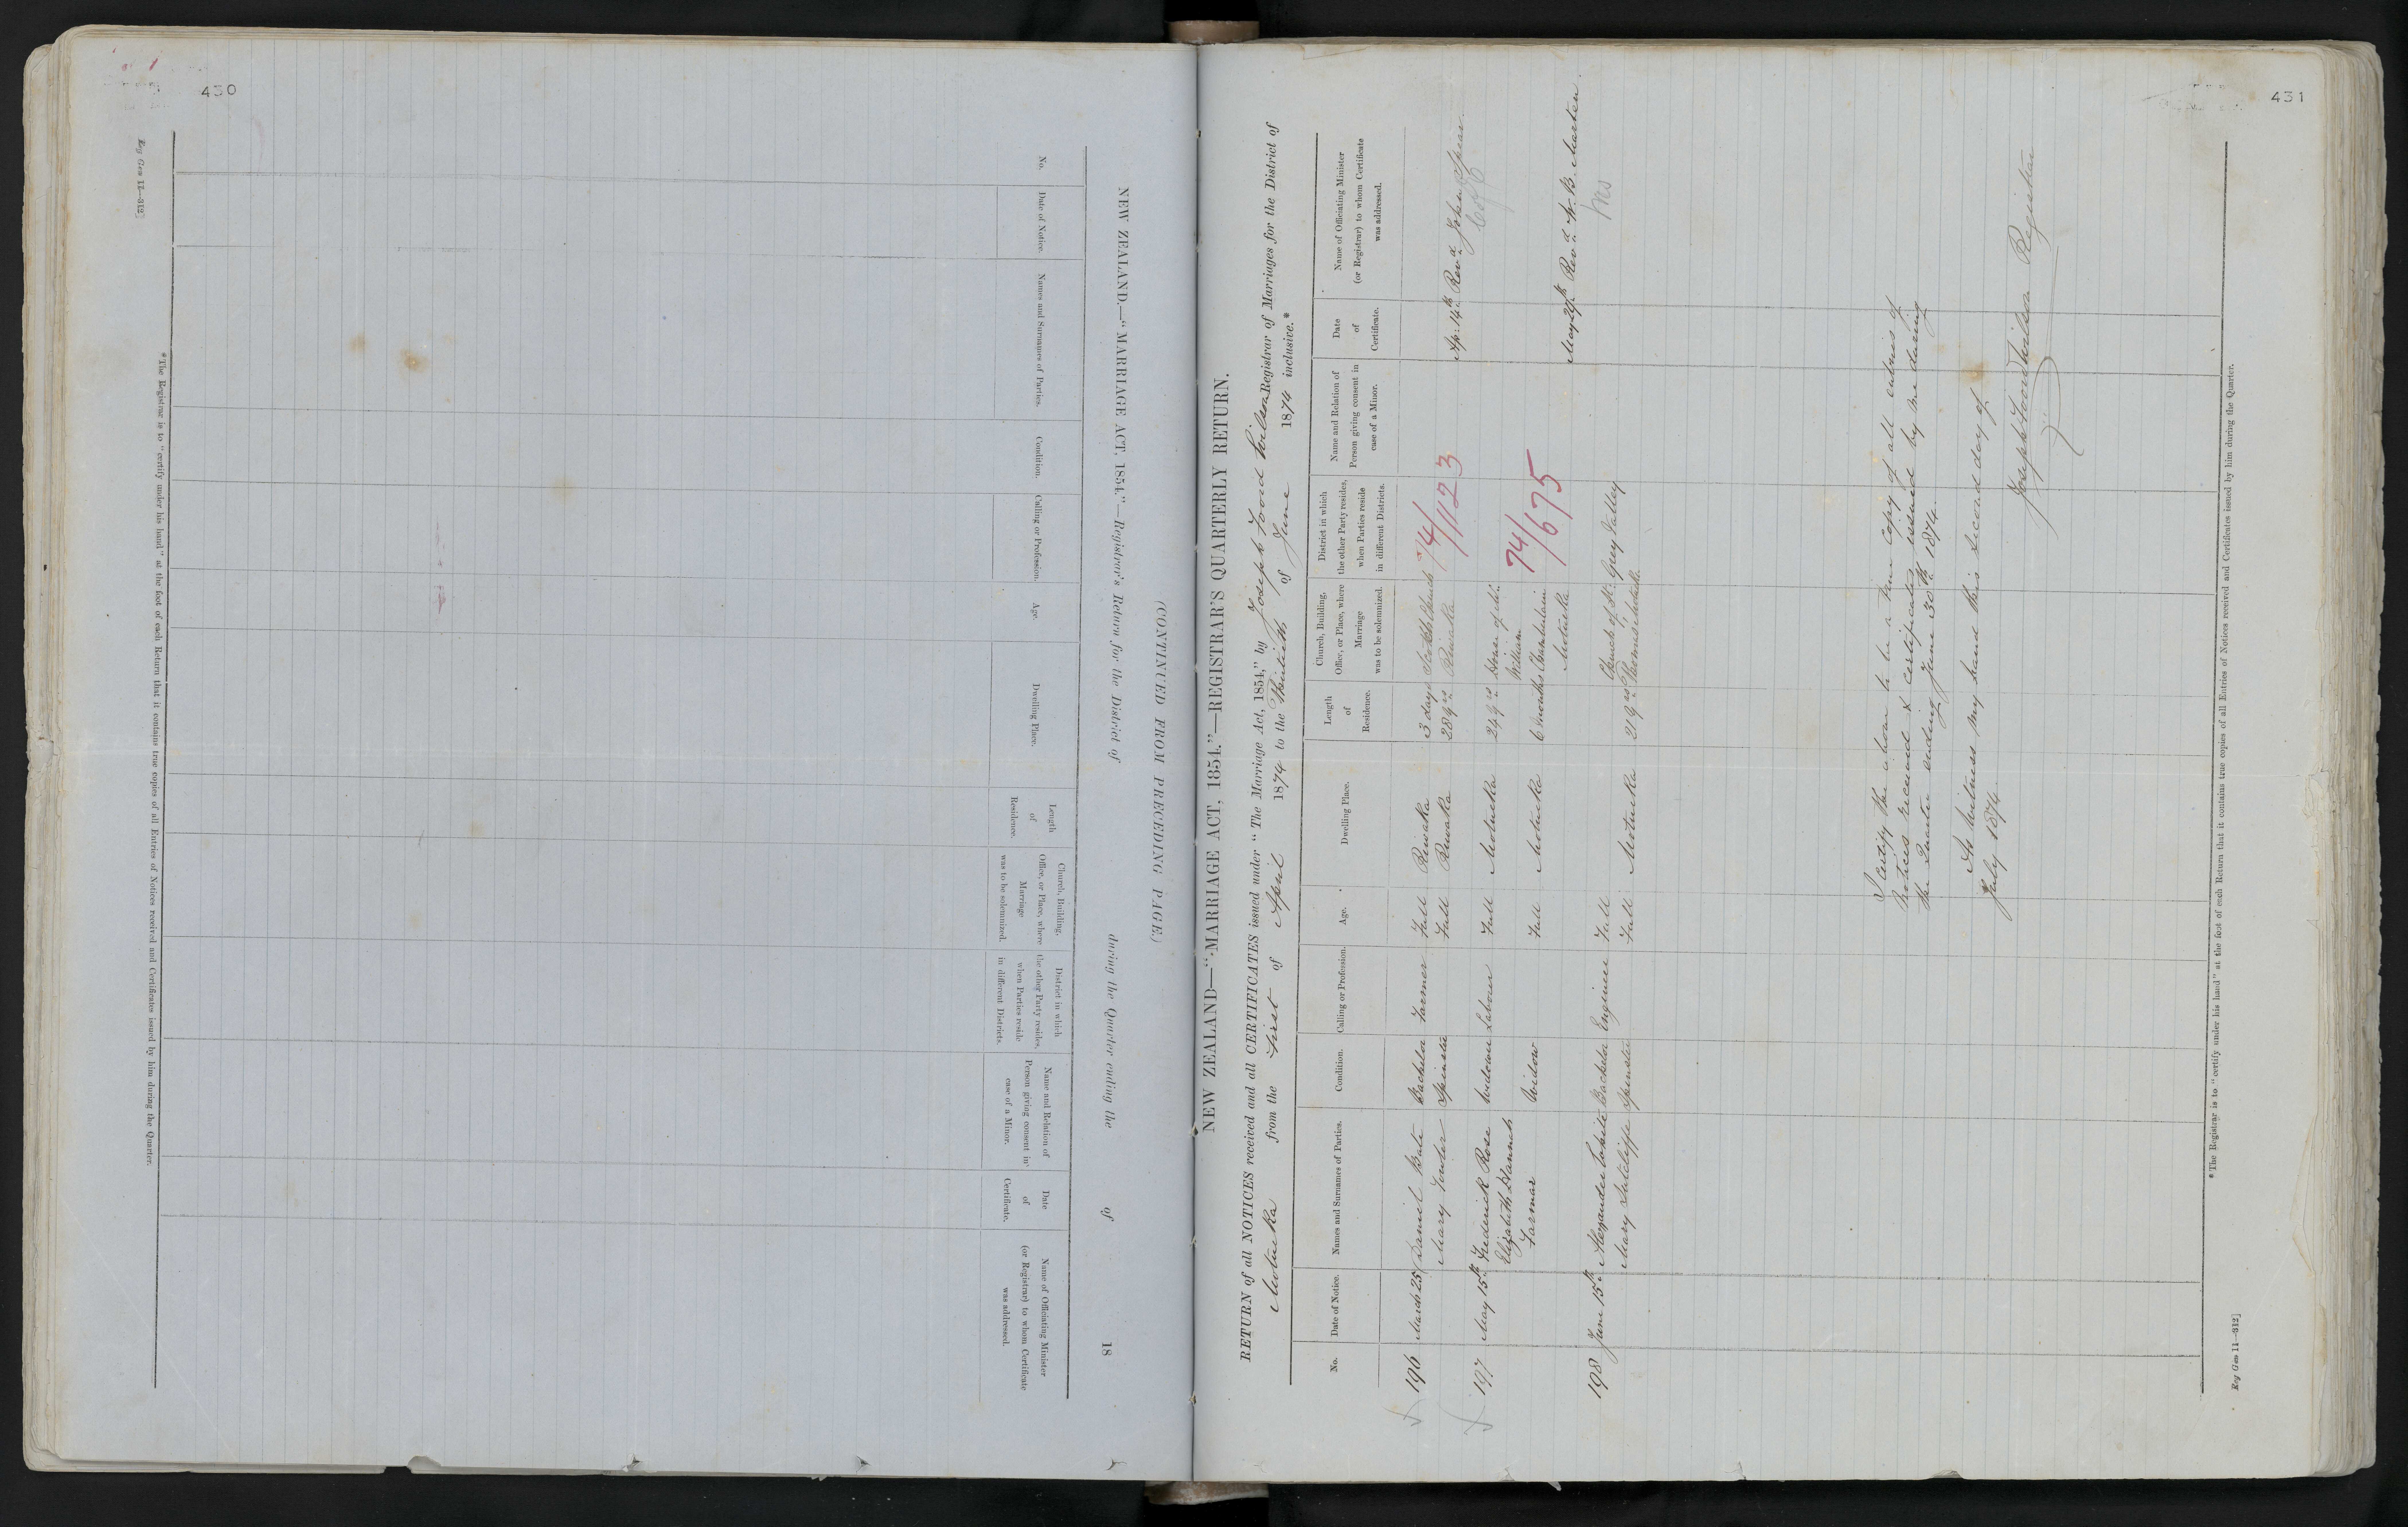 430
Reg Gen 12—312]
NEW ZEALAND.—"MARRIAGE ACT, 1854."—Registrar's Return for the District of during the Quarter ending the of 18
(CONTINUED FROM PRECEDING PAGE.)
No.
Date of Notice.
Names and Surnames of Parties.
Condition.
Calling or Profession.
Age.
Dwelling Place.
Length of Residence.
Church, Building, Office, or Place, where Marriage was to be solemnized.
District in which the other Party resides, when Parties reside in different Districts.
Name and Relation of Person giving consent in case of a Minor.
Date of Certificate.
Name of Officiating Minister (or Registrar) to whom Certificate was addressed.
*The Registrar is to "certify under his hand" at the foot of each Return that it contains true copies of all Entries of Notices received and Certificates issued by him during the Quarter.
431
NEW ZEALAND—"MARRIAGE ACT, 1854."—REGISTRAR'S QUARTERLY RETURN.
RETURN of all NOTICES received and all CERTIFICATES issued under "The Marriage Act, 1854," by Joseph Foord Wilson Registrar of Marriages for the District of
Motueka from the First of April 1874 to the Thirtieth of June 1874 inclusive.*
No.
Date of Notice.
Names and Surnames of Parties.
Condition.
Calling or Profession.
Age.
Dwelling Place.
Length of Residence.
Church, Building, Office, or Place, where Marriage was to be solemnized.
District in which the other Party resides, when Parties reside in different Districts.
Name and Relation of Person giving consent in case of a Minor.
Date of Certificate.
Name of Officiating Minister (or Registrar) to whom Certificate was addressed.
196 March 25 Daniel Bate Bachelor Farmer Full Riwaka 3 days Church 74/1123 Ap: 14th Revd. John Spear
Mary Spinster Full Riwaka 28 yrs Riwaka
197 May 15th Frederick Rose Widower Labourer Full Motueka 24 yrs House of William 74/675 May 29th Revd.
Elizabeth Hannah Farmar Widow Full Motueka 6 months Chamberlain Motueka
198 June 15th Alexander White Bachelor Engineer Full Grey Valley
Mary Sutcliffe Spinster Full Motueka 21 yrs Church of St. Thomas Motueka
I certify the above to be a true copy of all entries of
Notices received & certificates issued by me during
the Quarter ending June 30th 1874.
As Witness my hand this second day of
July 1874.
Joseph Foord Wilson Registrar
*The Registrar is to "certify under his hand" at the foot of each Return that it contains true copies of all Entries of Notices received and Certificates issued by him during the Quarter.
Reg Gen 11—312]